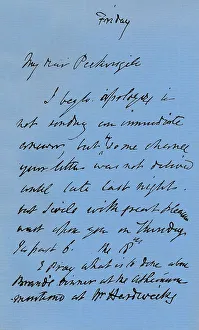 Friday
My dear
I beg to apologise
not sending an immediate
answer, but by some chance
your letter was not
until late last night.
but I will with great pleasure
wait upon you on Thursday
past 6. the
I pray what is to done about
dinner at the Athenaeum
mentioned at Mr Hardwick's